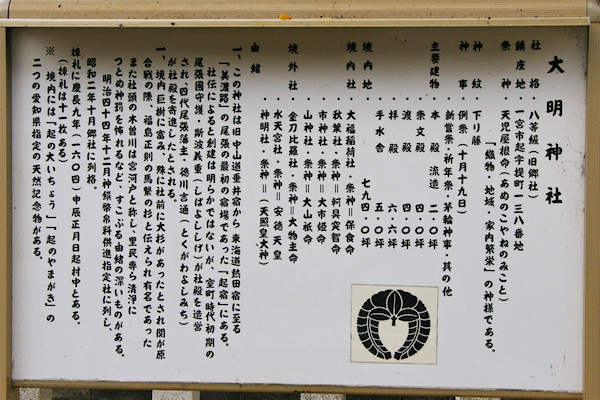 大明神社
社格・八等級(旧郷社)
鎮座地・一宮市起字堤町一三八番地
祭神・天児屋根命(あめのこやねのみこと)
「織物・地域・家内繁栄」の神様である。
神紋・下り藤
神事・例祭(十月十九日)
新嘗祭・祈年祭・茅輪神事・其の他
主要建物・本殿 流造 二・〇〇坪
祭文殿 四・〇〇坪
渡殿 二・〇〇坪
拝殿 六・六六坪
手水舎 五・〇〇坪
境内地 七九四・〇〇坪
境内社・大福稲荷社・祭神=保食命
秋葉社・祭神=軻具突智命
市神社・祭神=大市姫命
山神社・祭神=大山祇命
境外社・金刀比羅社・祭神=大物主命
・水天宮社・祭神=安徳天皇
・神明社・祭神=(天照皇大神)
由緒
一、この神社は旧中山道垂井宿から東海道熱田宿に至る
「美濃路」の尾張の最初の宿場であった「起宿」にある。
社伝によると創建は明らかではないが、室町時代初期の
尾張國守護、斯波義重(しばよししげ)が社殿を造営
され、四代尾張藩主・徳川吉通(とくがわよしみち)
が社殿を寄進したとされる。
一、境内巨樹に富み、殊に社前に大杉があったとされ関が原
合戦の際、福島正則の馬繋の杉と伝えられ有名であった
また社頭の木曽川は宮河戸と称し、里民専ら清浄に
つとめ神罰を怖れるなど、すこぶる由緒の深いものがある。
明治四十四年十二月神饌幣帛料供進指定社に列し、
昭和二年十月郷社に列格。
棟札に慶長九年(一六〇四)中辰正月日起村中とある。
(棟札は十一枚ある)
※ 境内には「起の大いちょう」「起のやまがき」の
二つの愛知県指定の天然記念物がある。